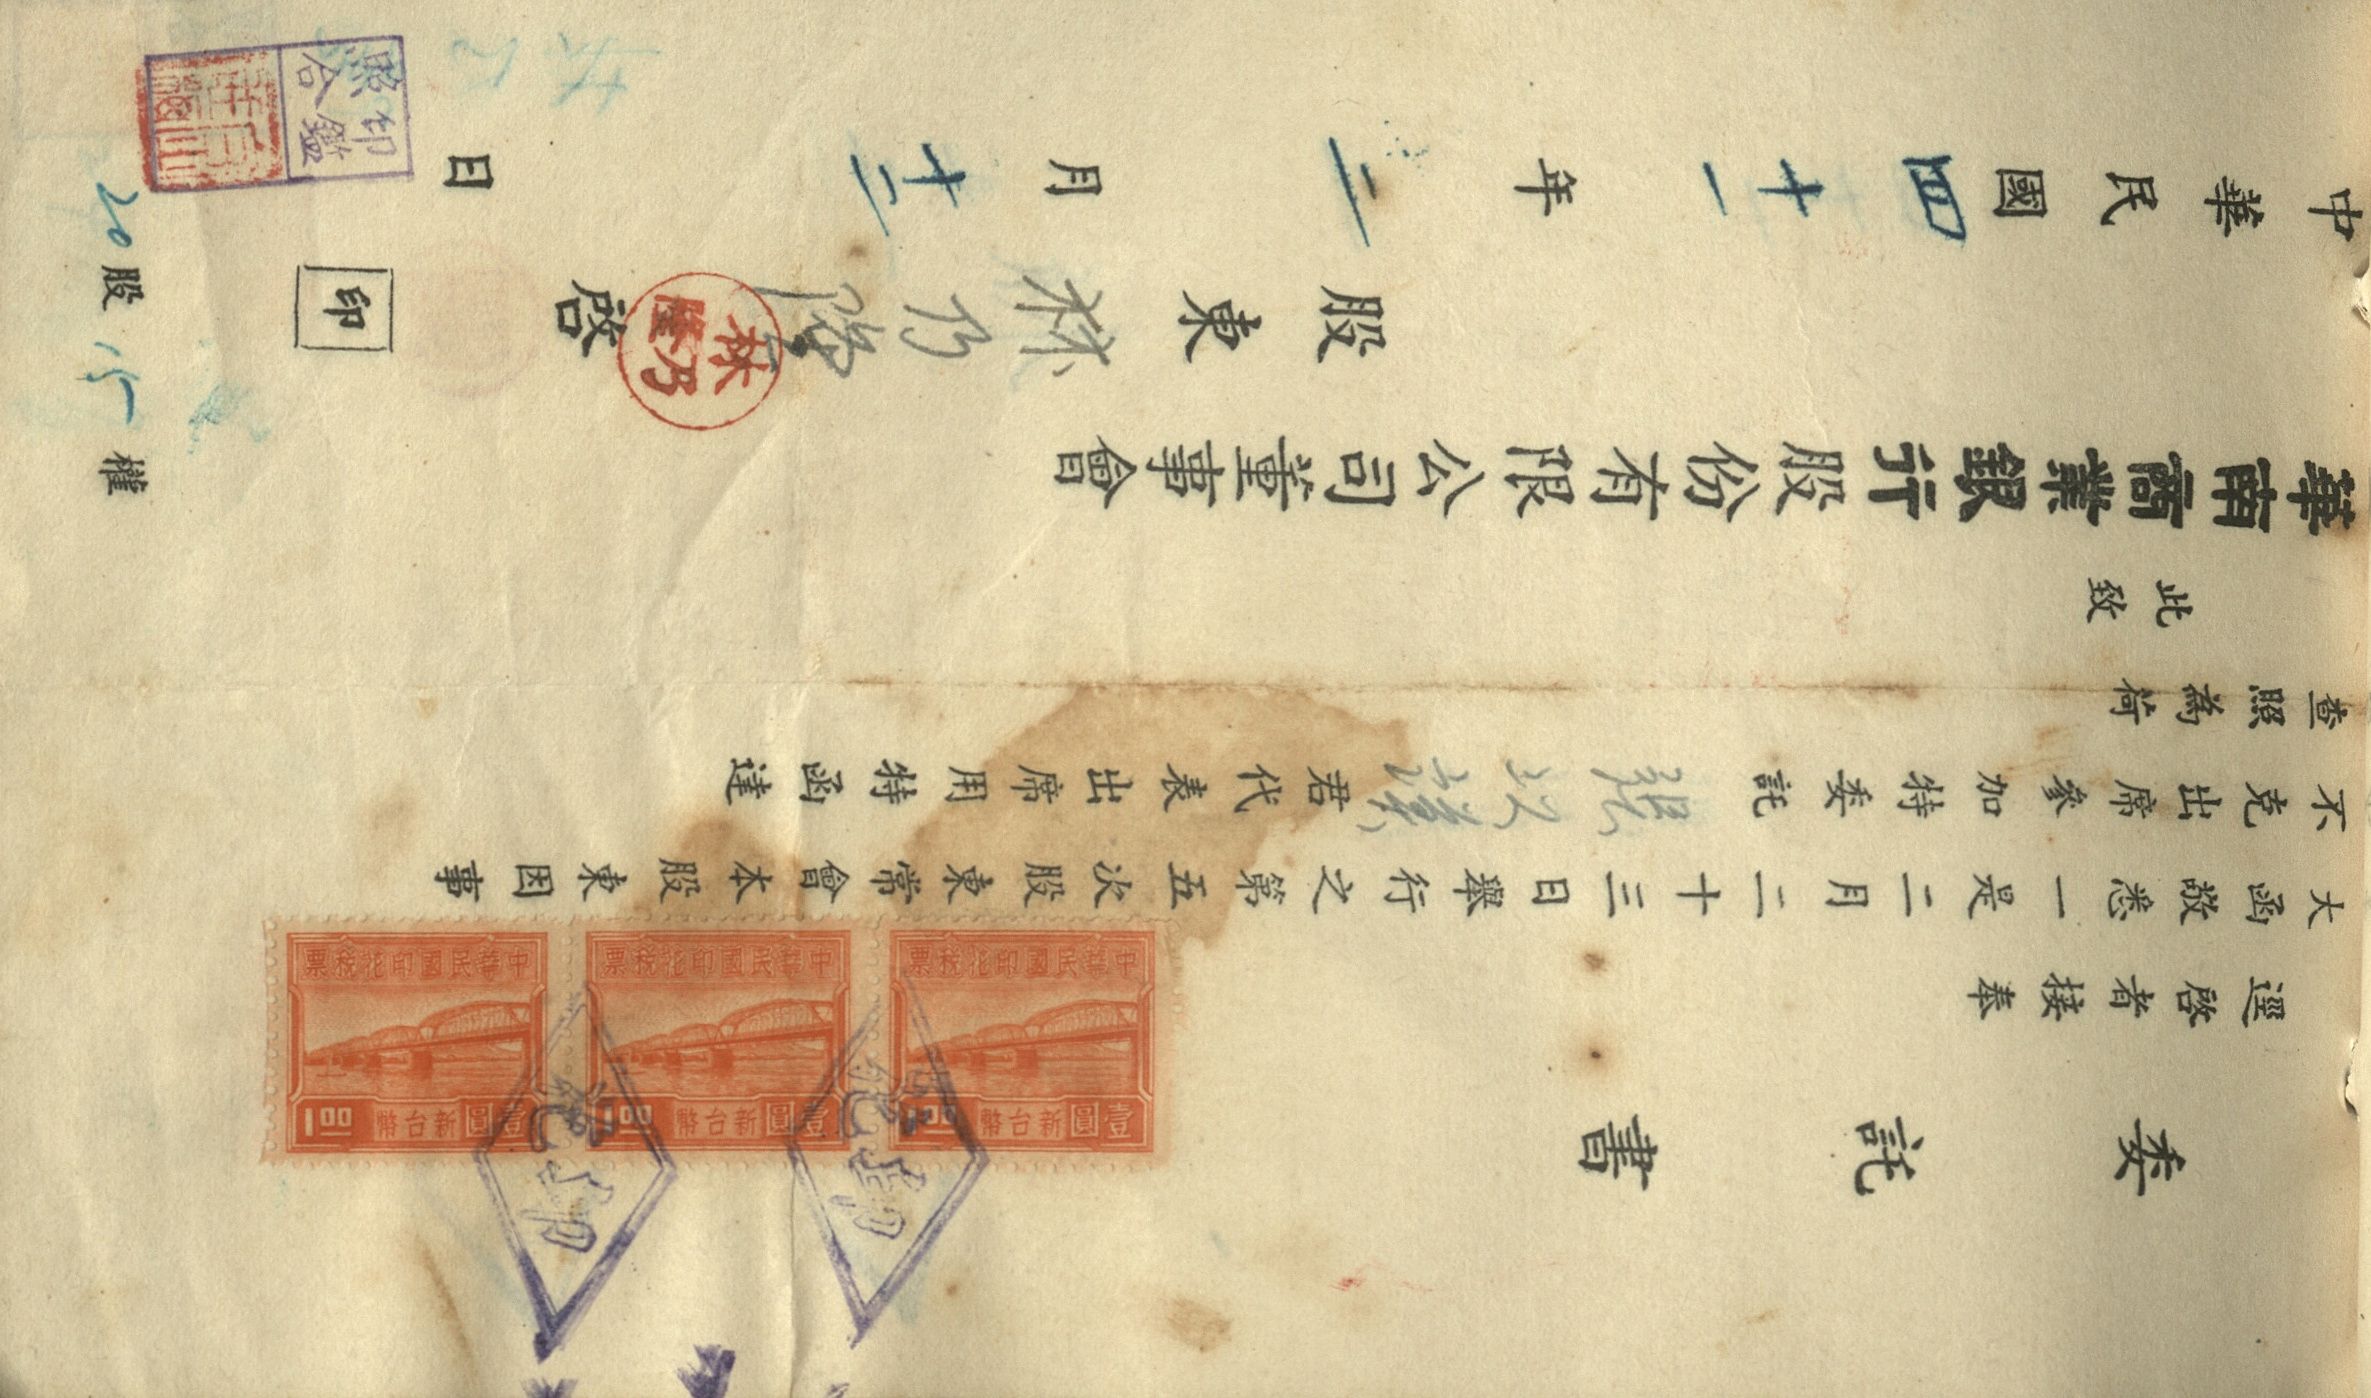 委託書
逕啓者接奉
大函敬悉一是二月二十三日舉行之第五次股東常會本股東因事
不克出席參加特委託 君代表出席用特函達
查照為荷
此致
華南商業銀行股份有限公司董事會
股東林乃隆啟
林乃隆
印
中華民國四十一年二月十二日
20股15權
印鑑
照合
中華民國印花稅票
壹圓新台幣1.00
中華民國印花稅票
壹圓新台幣1.00
中華民國印花稅票
壹圓新台幣1.00